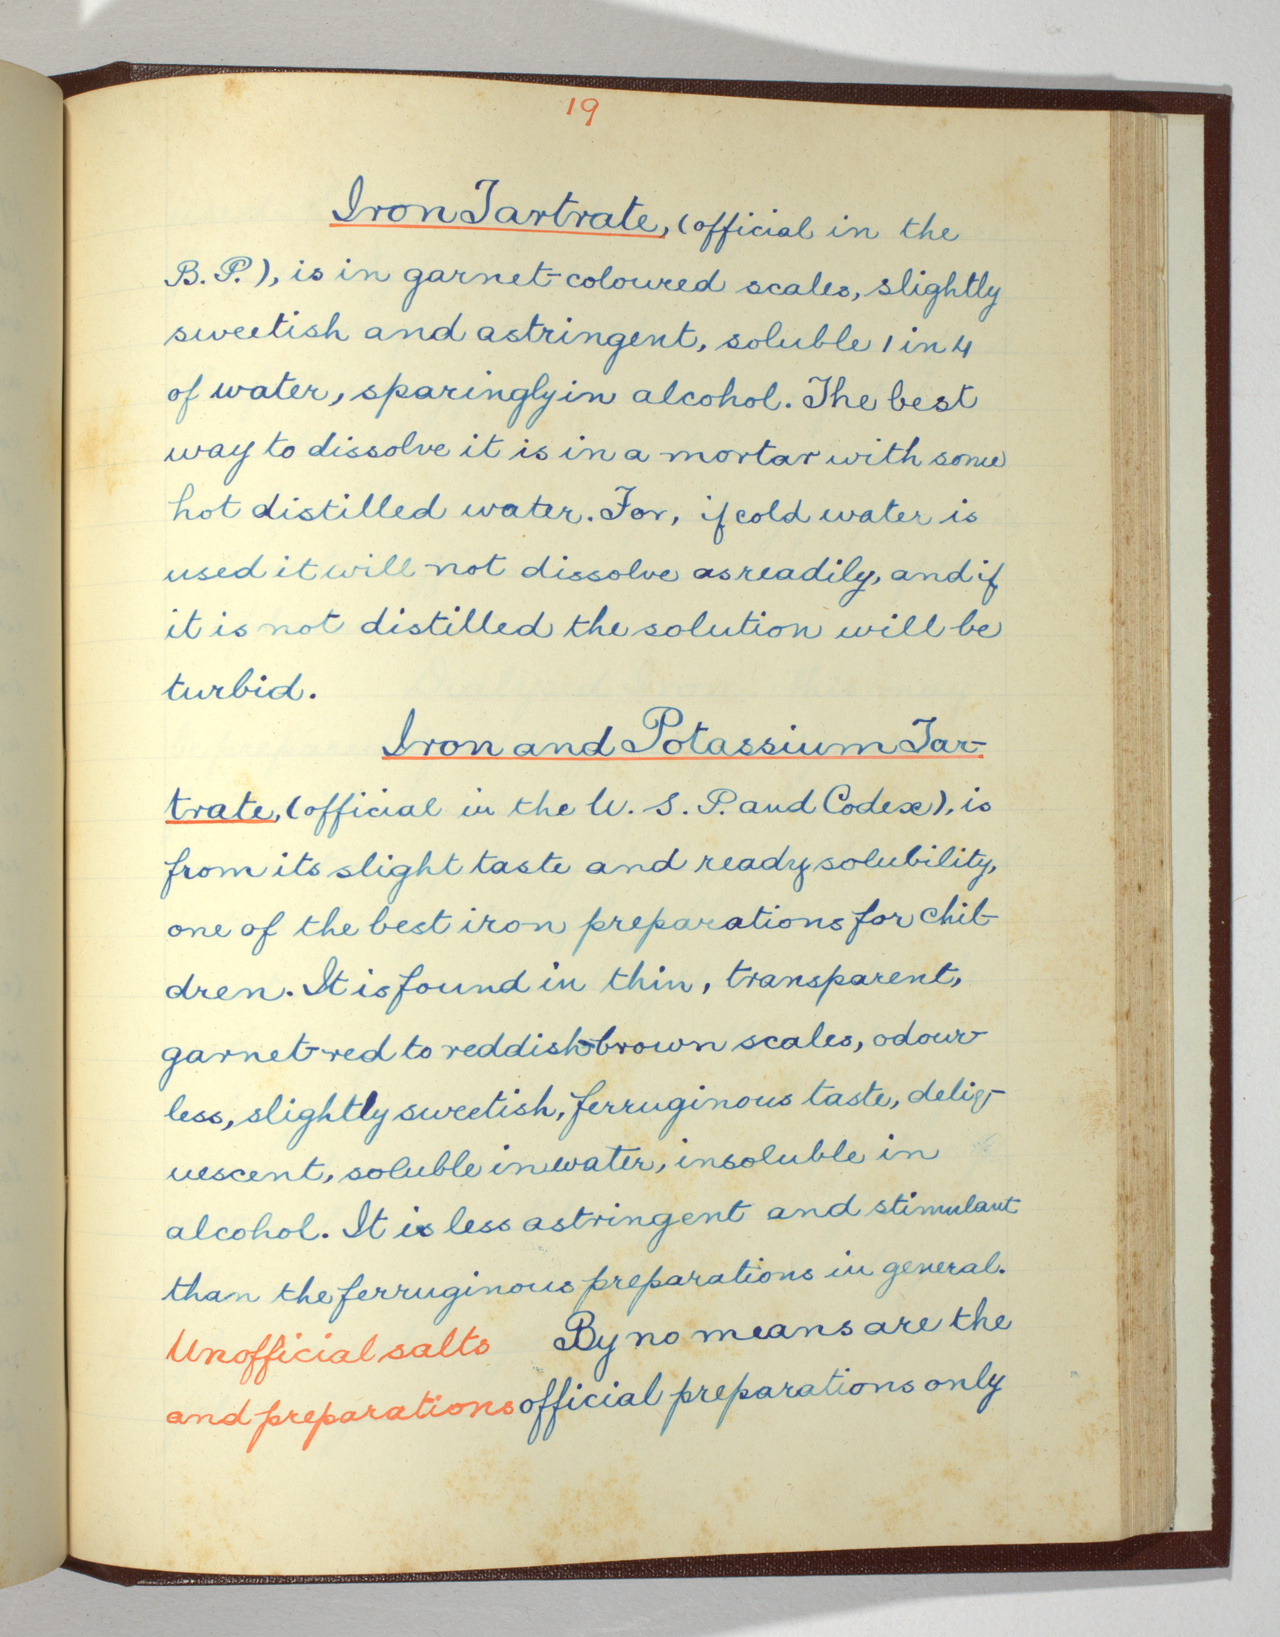 19
Iron Tartrate, (official in the
B. P.), is in garnet-coloured scales, slightly
sweetish and astringent, soluble 1 in 4
of water, sparingly in alcohol. The best
way to dissolve it is in a mortar with some
hot distilled water. For, if cold water is
used it will not dissolve as readily, and if
it is not distilled the solution will be
turbid.
Iron and Potassium Tar-
trate, (official in the U. S. P. and Codex), is
from its slight taste and ready solubility,
one of the best iron preparations for chil-
dren. It is found in thin, transparent,
garnet-red to reddish-brown scales, odour-
less, slightly sweetish, ferruginous taste, deliq-
uescent, soluble in water, insoluble in
alcohol. It is less astringent and stimulant
than the ferruginous preparations in general.
Unofficial salts By no means are the
and preparations official preparations only